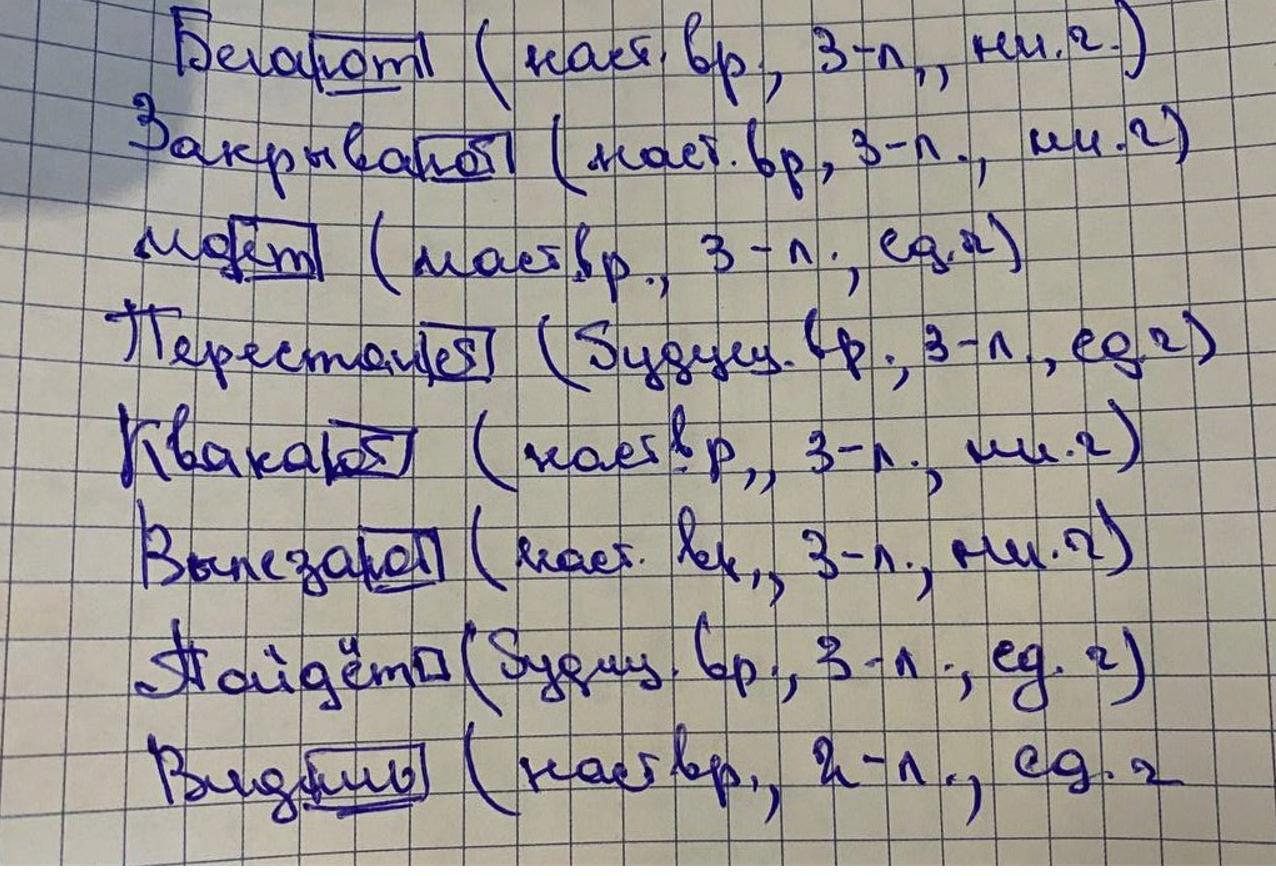 Бегают (наст. вр., 3-л., мн. ч.)
Закрывают (наст. вр, 3-л., мн. ч)
моет (наст вр., 3-л., ед. ч)
Перестанет (будущ. вр., 3-л., ед. ч)
Квакают (наст вр., 3-л., мн. ч)
Вылезают (наст. вр., 3-л., мн. ч)
Пойдёт (будущ. вр., 3-л., ед. ч)
Видишь (наст вр., 2-л., ед. ч